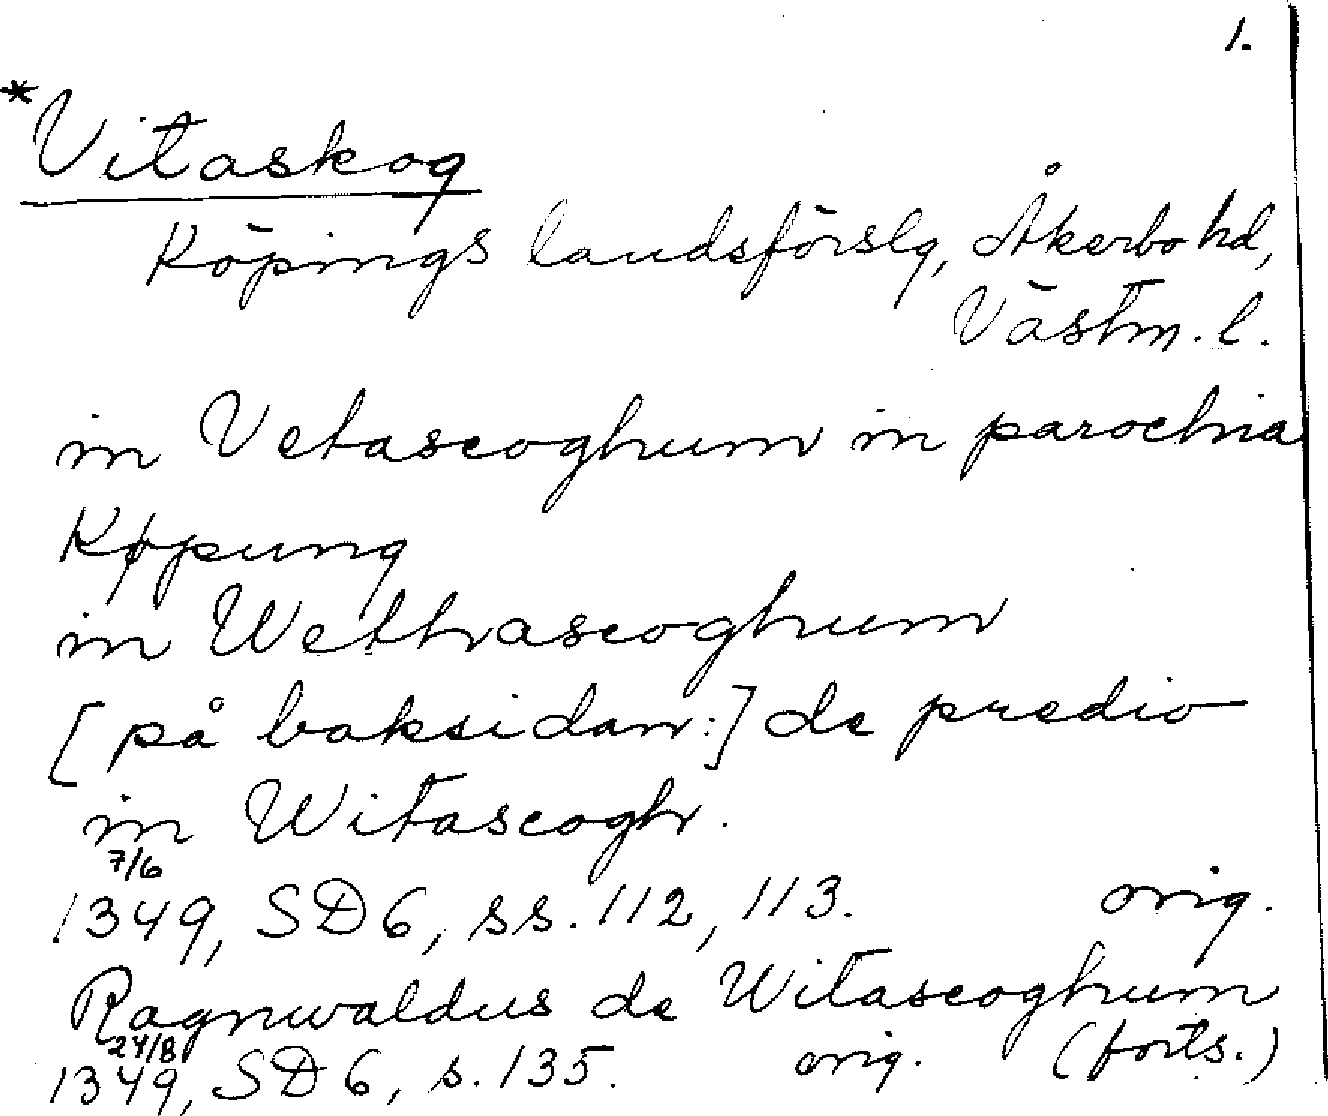 1.
*Vitaskog
Köpings landsförslg, Åkerbo hd,
Västm. l.
in Vetascoghum in parochia
Køpung
in Wethascoghum
[på baksidan:] de predio
in Witascogh.
7/6
1349, SD 6, ss. 112, 113. orig.
Ragnwaldus de Witascoghum
24/8
1349, SD 6, s. 135. orig. (forts.)